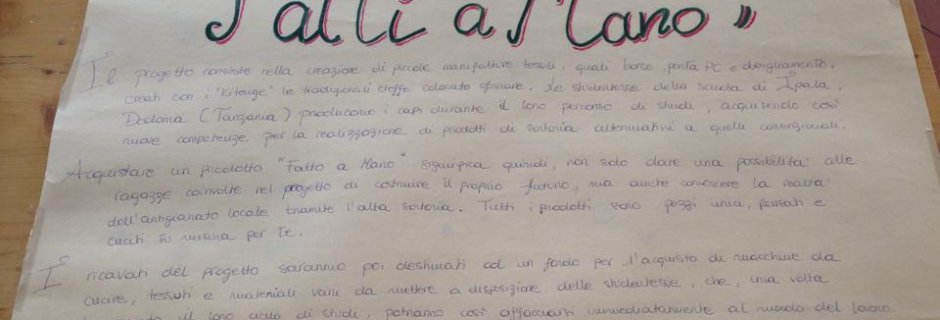 Fatti a Mano"
Il progetto consiste nella creazione di piccole manifatture tessili, quali borse, porta PC e abbigliamento,
creati con i "Kitenge" le tradizionali stoffe colorate africane. Le studentesse della scuola di Ipala,
Dodoma (Tanzania) producono i capi durante il loro percorso di studi, acquisendo così
nuove competenze per la realizzazione di prodotti di sartoria alternativi a quelli convenzionali.
Acquistare un prodotto "Fatto a Mano" significa quindi, non solo dare una possibilità alle
ragazze coinvolte nel progetto di costruire il proprio futuro, ma anche conoscere la realtà
dell'artigianato locale tramite l'alta sartoria. Tutti i prodotti sono pezzi unici, pensati e
cuciti su misura per te.
I ricavati del progetto saranno poi destinati ad un fondo per l'acquisto di macchine da
cucire, tessuti e materiali vari da mettere a disposizione delle studentesse, che, una volta
il loro ciclo di studi, potranno così affacciarsi immediatamente al mondo del lavoro